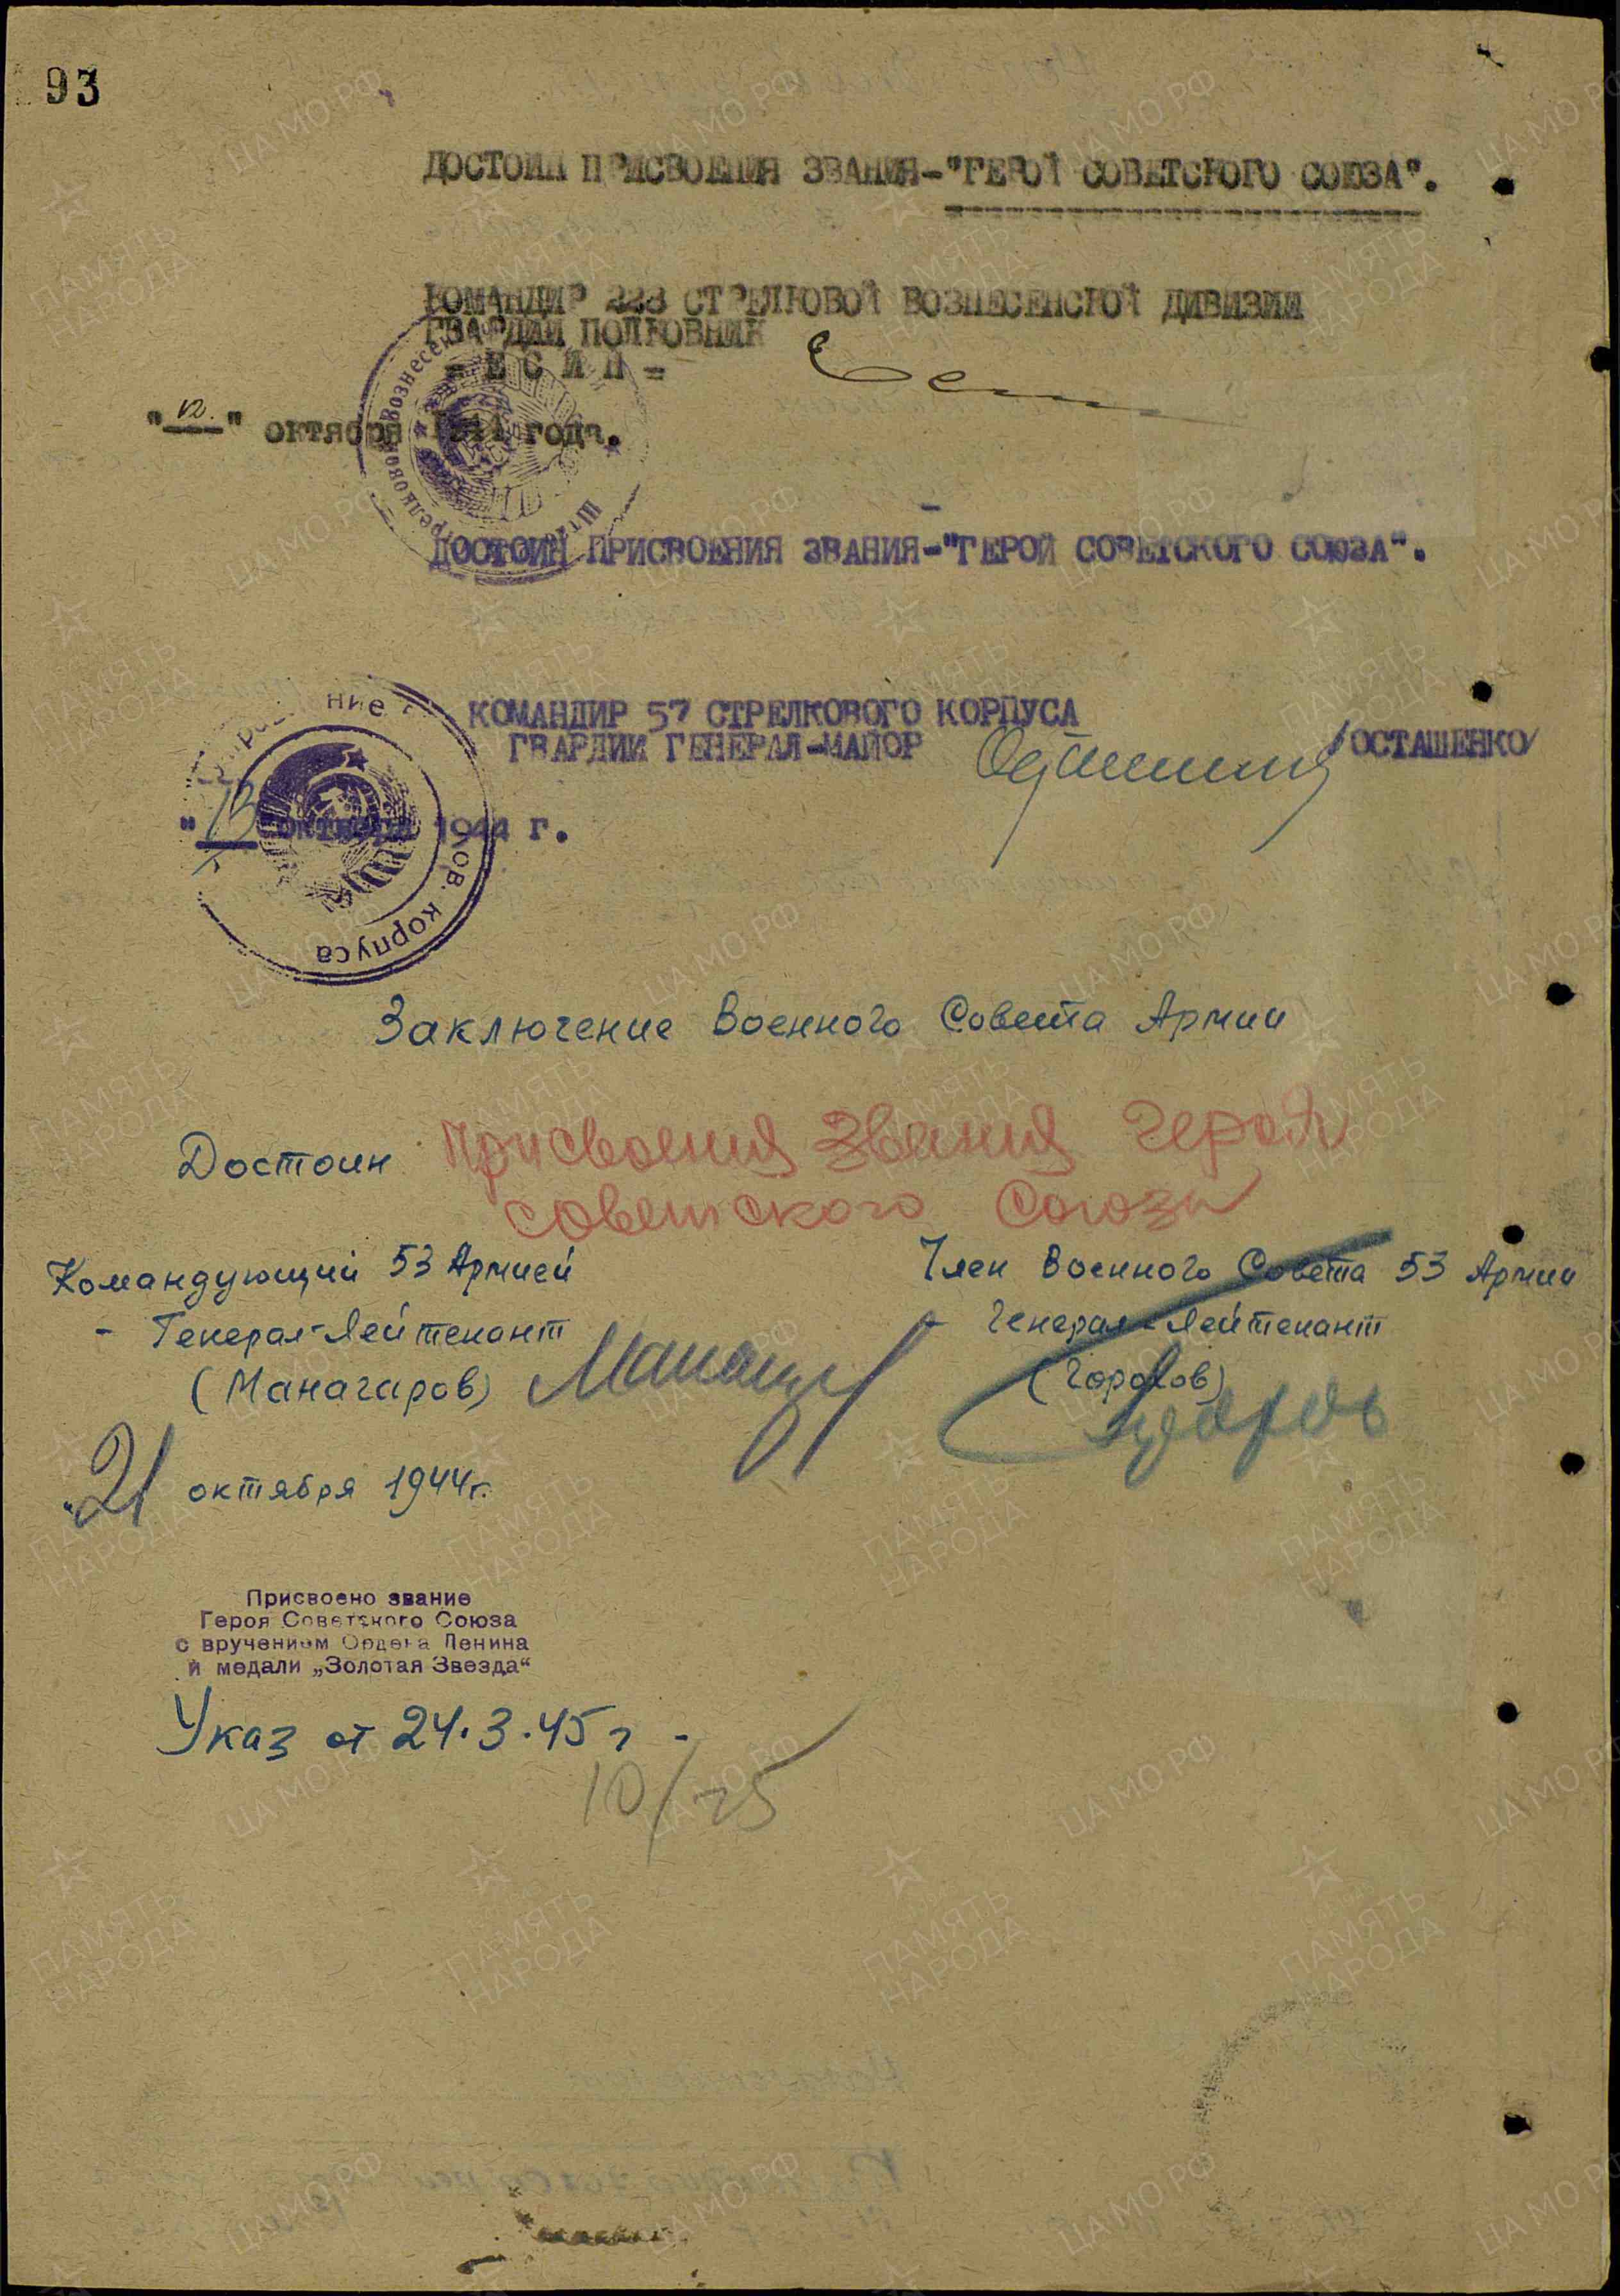 93
ДОСТОИН ПРИСВОЕНИЯ ЗВАНИЯ-"ГЕРОЙ СОВЕТСКОГО СОЮЗА".
КОМАНДИР 228 СТРЕЛКОВОЙ ВОЗНЕСЕНСКОЙ ДИВИЗИИ
ГВАРДИИ ПОЛКОВНИК
= Е С И Н =
"12." октября 1944 года.
ДОСТОИН ПРИСВОЕНИЯ ЗВАНИЯ-"ГЕРОЙ СОВЕТСКОГО СОЮЗА".
КОМАНДИР 57 СТРЕЛКОВОГО КОРПУСА
ГВАРДИИ ГЕНЕРАЛ-МАЙОР /ОСТАШЕНКО/
"13" октября 1944 г.
корпуса
Заключение Военного Совета Армии
Достоин присвоения звания героя
советского союза
Командующий 53 Армией
- Генерал-Лейтенант
(Манагаров)
Член Военного Совета 53 Армии
Генерал-Лейтенант
(Горохов)
"21 октября 1944г.
Присвоено звание
Героя Советского Союза
с вручением Ордена Ленина
и медали „Золотая Звезда“
Указ от 24.3.45 г -
10/75
ЦА МО РФ
ПАМЯТЬ
НАРОДА